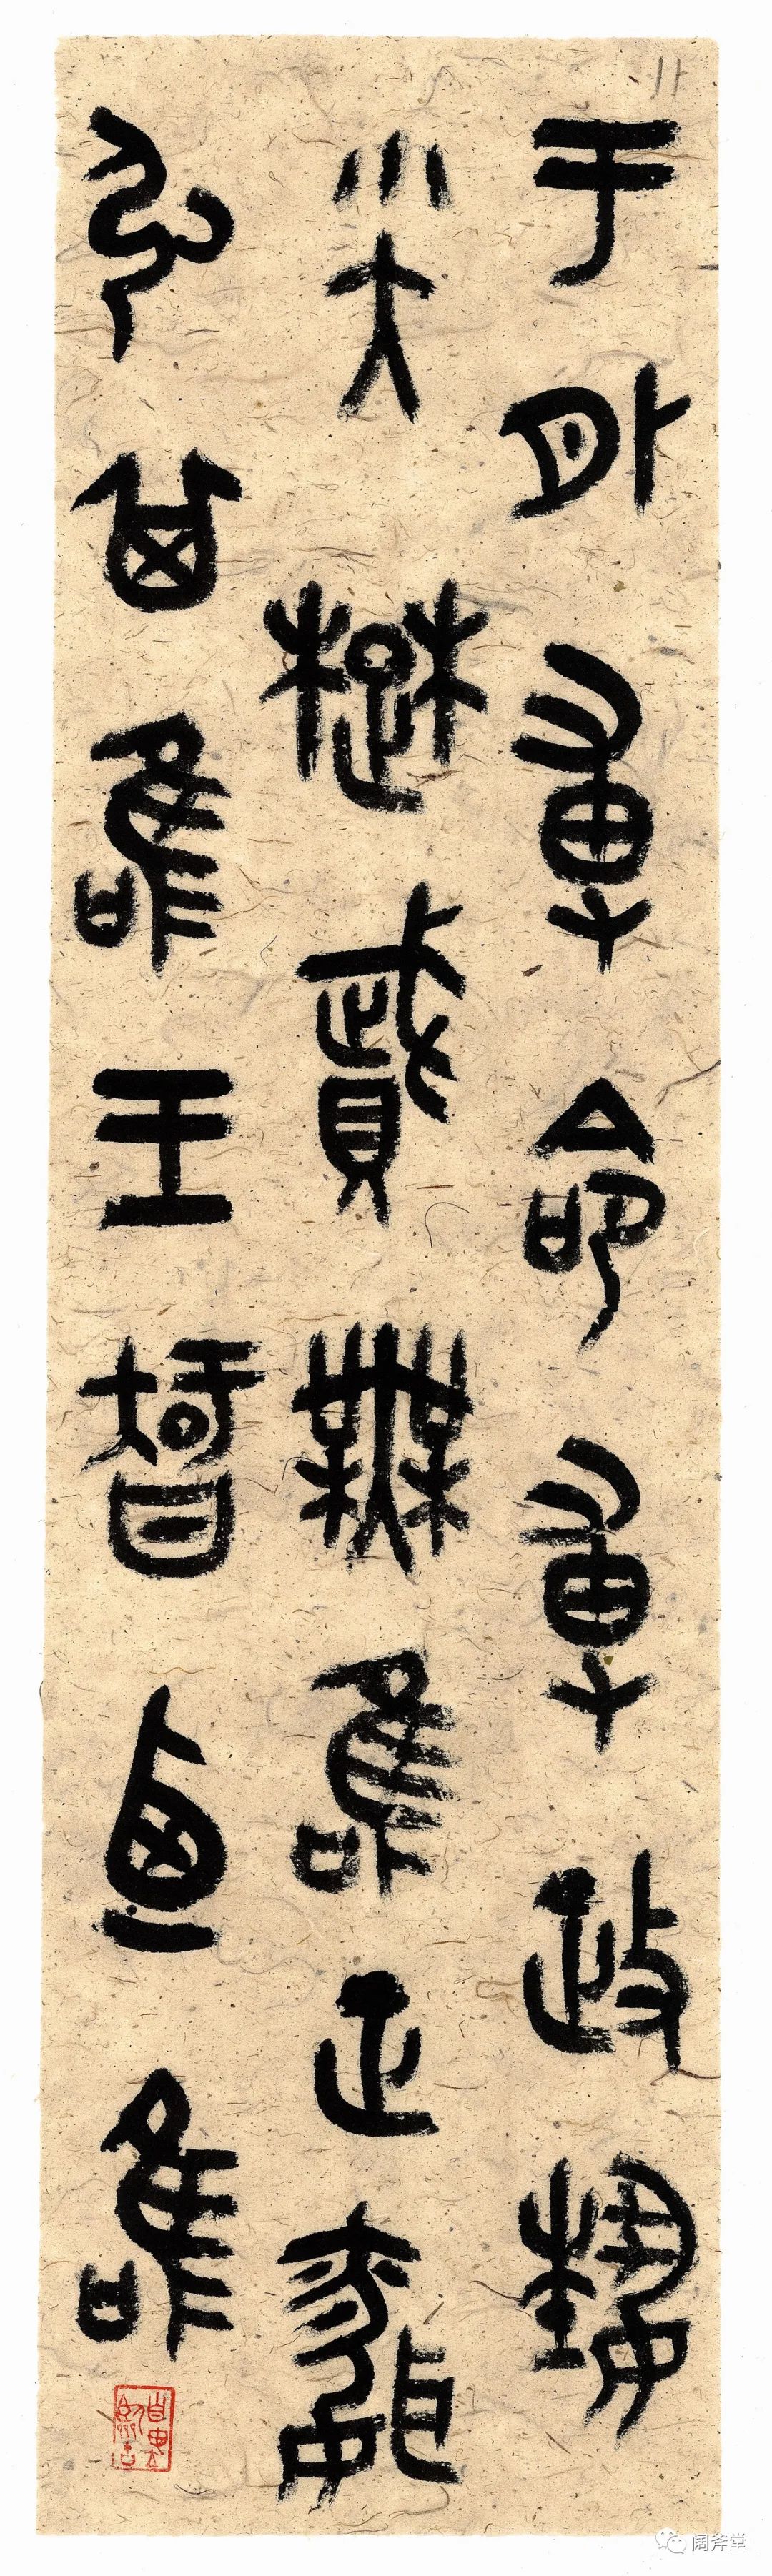 于外尃命尃政埶
小大楚賦無唯正聞
引其唯王智廼唯
11
阔斧堂